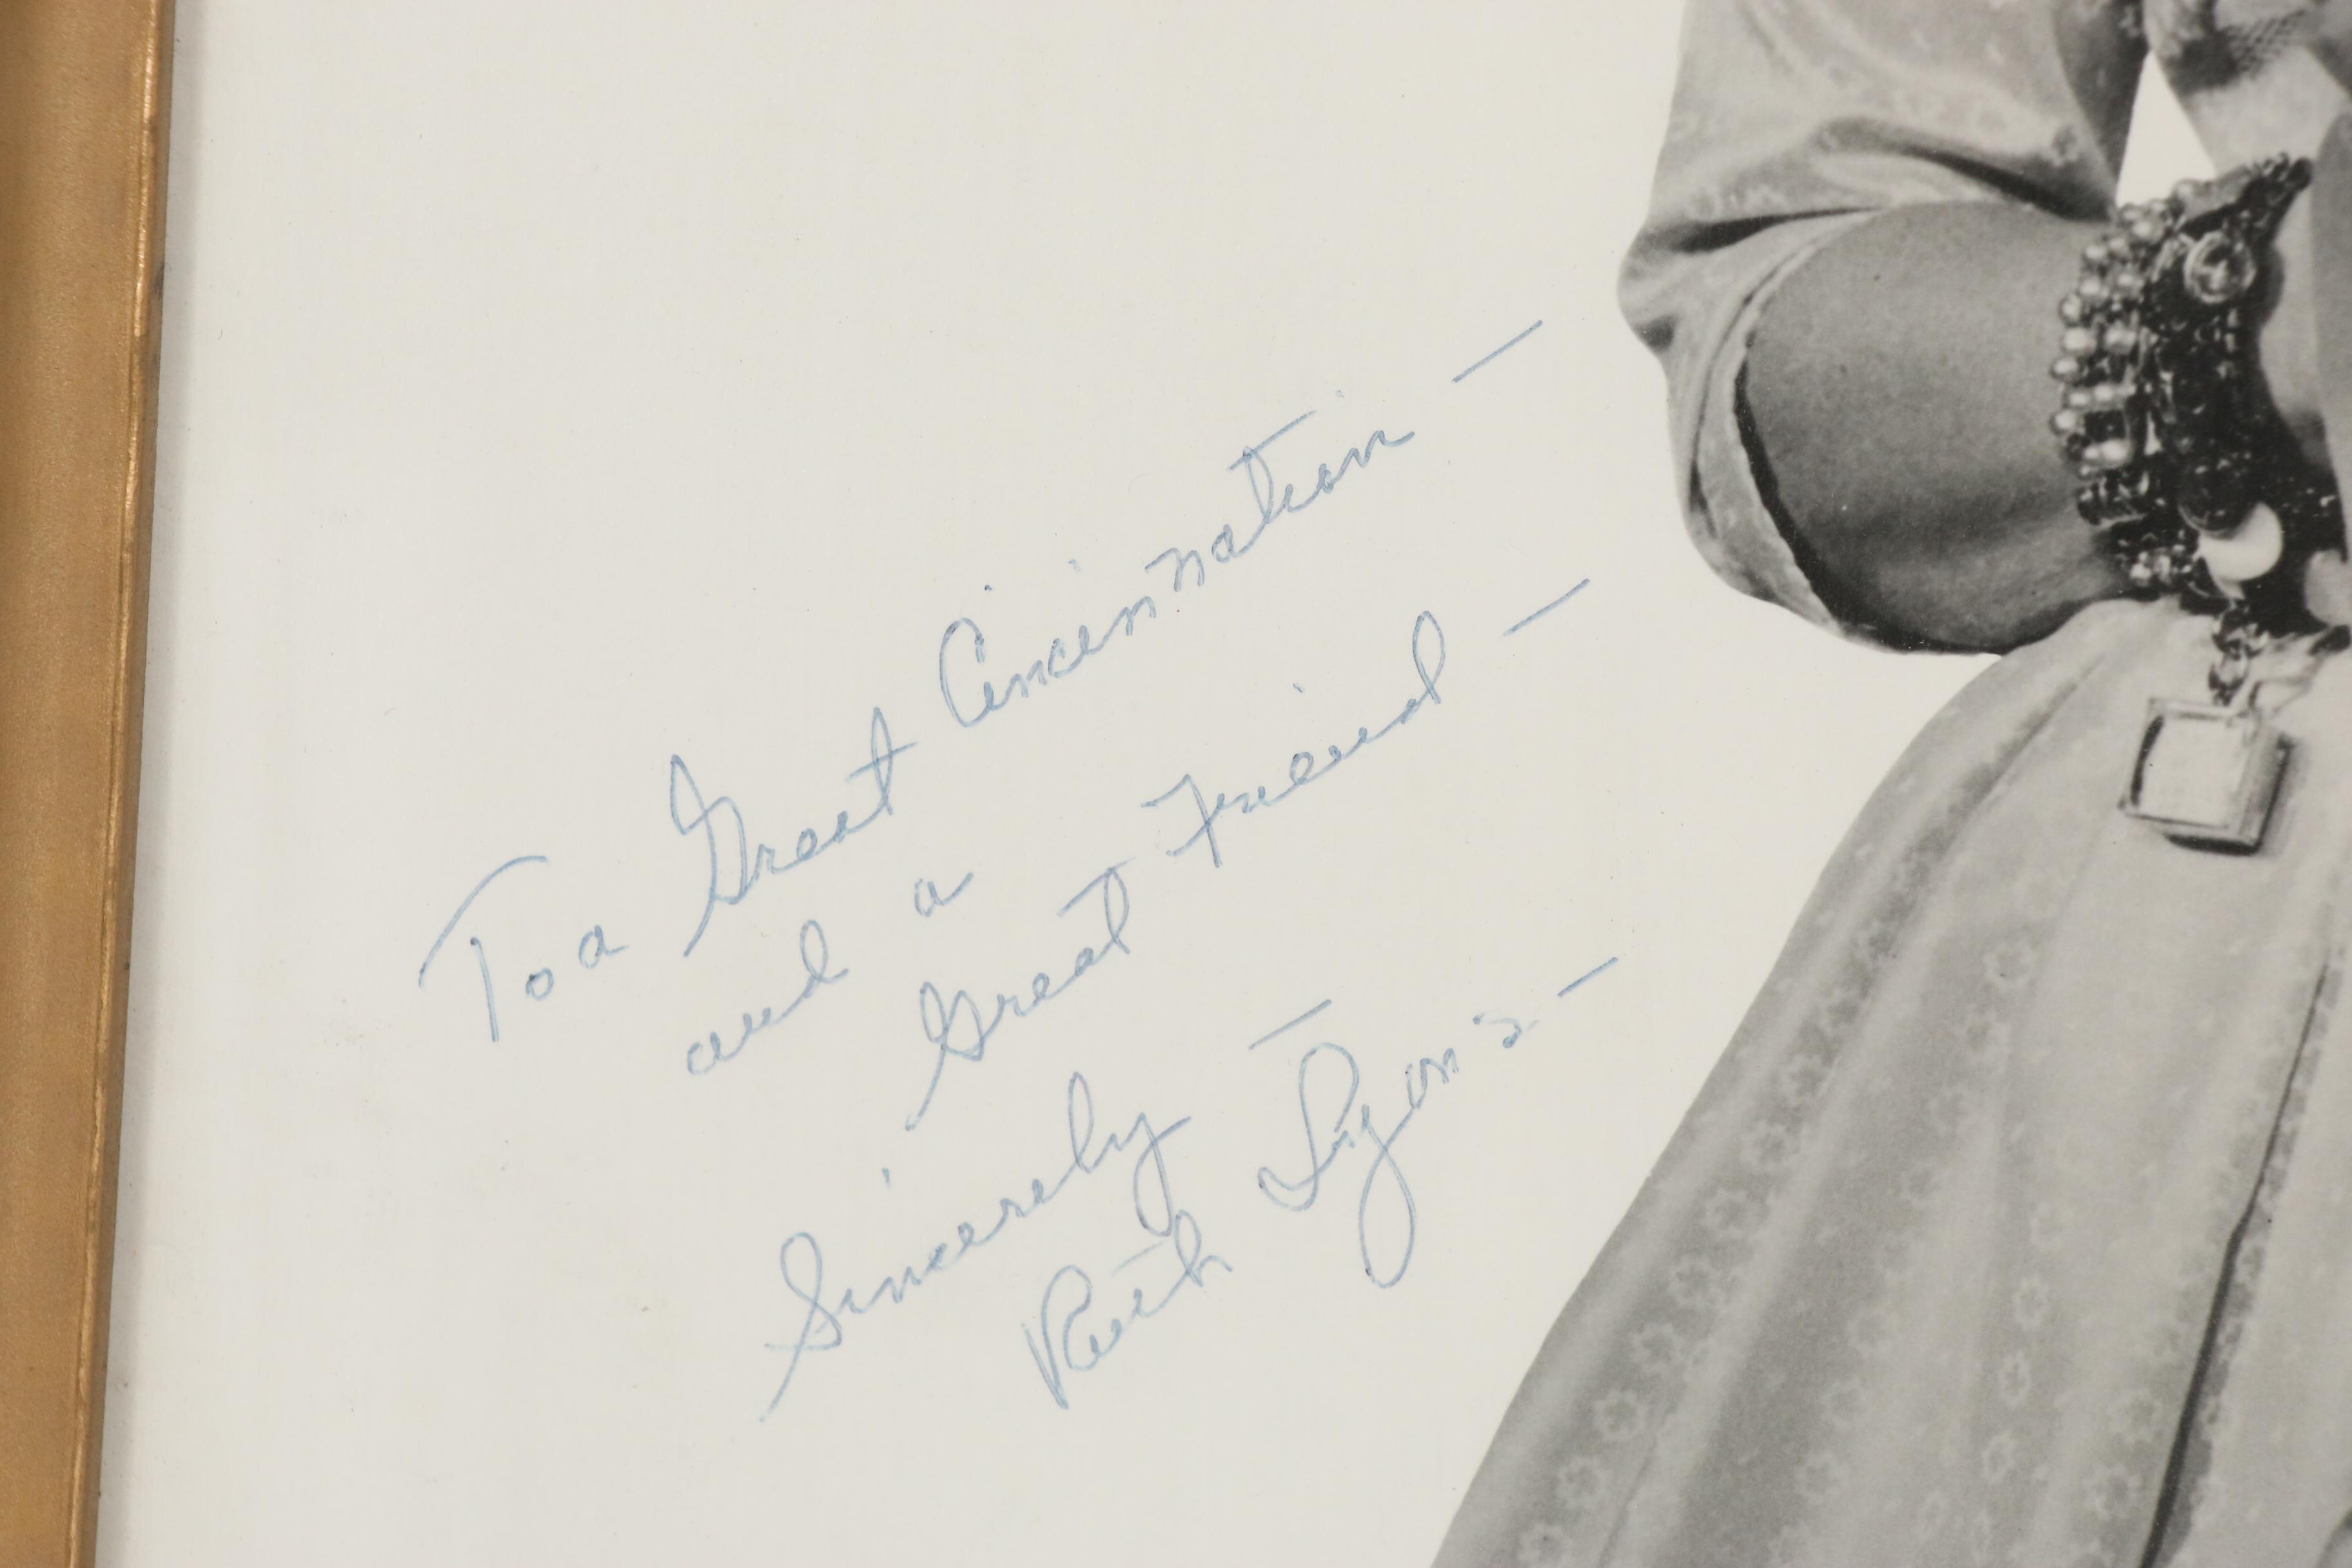 To a Great Cincinnatian —
and a
Great Friend —
Sincerely —
Ruth Lyons —